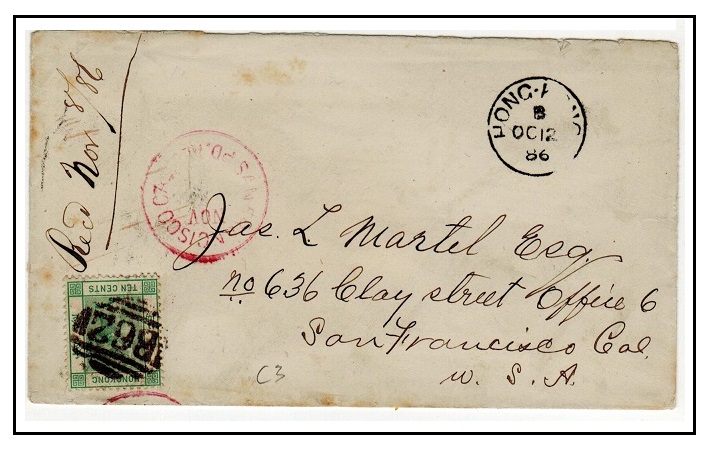 Recd Nov 8/86
HONG-K NG
B
OC 12
86
SAN CISCO CAL
NOV
PD. ALL
Jas. L Martel Esq.
no 636 Clay street Office 6
San Francisco Cal.
U. S. A.
TEN CENTS
B62
HONGKONG
C3